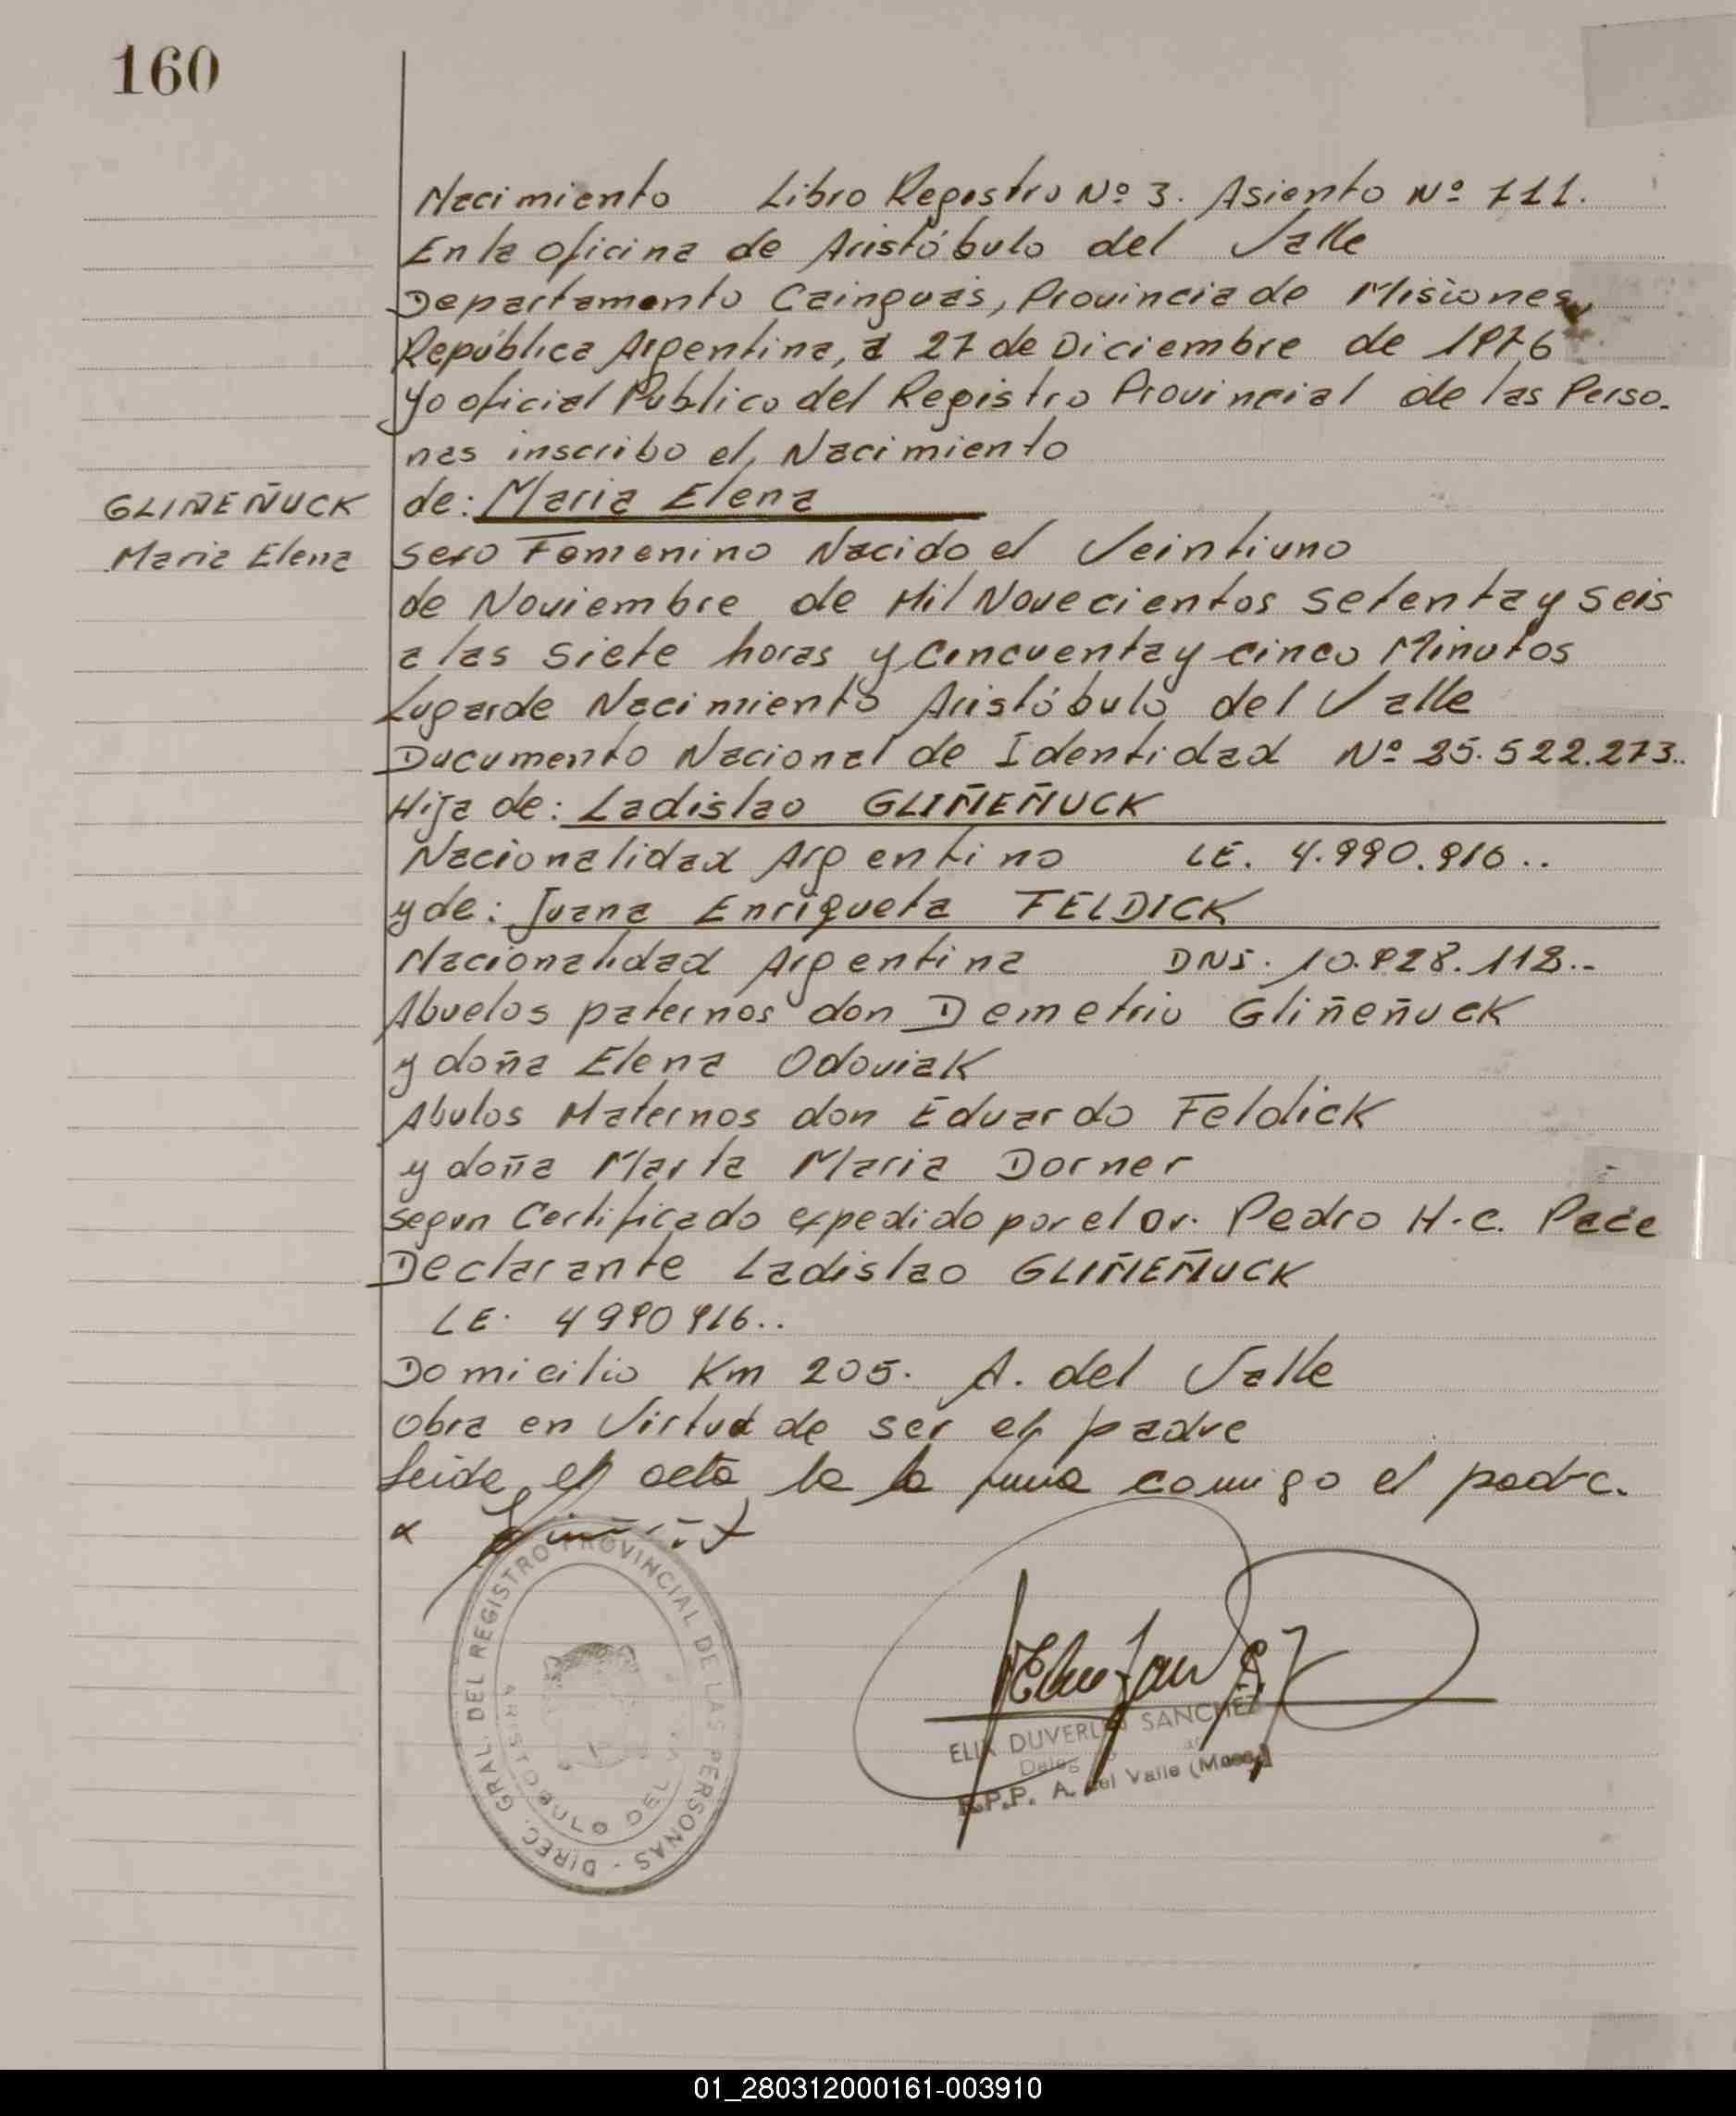 160
Nacimiento Libro Registro Nº 3. Asiento Nº 111.
En la oficina de Aristóbulo del Valle
Departamento Cainguás, Provincia de Misiones,
República Argentina, a 27 de Diciembre de 1976
Yo oficial Público del Registro Provincial de las Perso-
nas inscribo el, Nacimiento
GLIÑEÑUCK
Maria Elena
de: Maria Elena
sexo Femenino Nacido el Veintiuno
de Noviembre de Mil Novecientos setenta y seis
a las siete horas y cincuenta y cinco Minutos
Lugar de Nacimiento Aristóbulo del Valle
Documento Nacional de Identidad Nº 25.522.273..
Hija de: Ladislao GLIÑEÑUCK
Nacionalidad Argentino LE. 4.990.916..
y de: Juana Enriqueta FELDICK
Nacionalidad Argentina DNI. 10.928.118..
Abuelos paternos don Demetrio Gliñeñuck
y doña Elena Odoviak
Abulos Maternos don Eduardo Feldick
y doña Marta Maria Dorner
segun Certificado expedido por el Dr. Pedro H.C. Pace
Declarante Ladislao GLIÑEÑUCK
LE. 4990916..
Domicilio Km 205. A. del Valle
Obra en Virtud de ser el padre
Leida el acta la firma comigo el padre.
DIREC. GRAL. DEL REGISTRO PROVINCIAL DE LAS PERSONAS -
ARISTOBULO DEL
SANCHEZ
R.P.P. A. del Valle
01_280312000161-003910